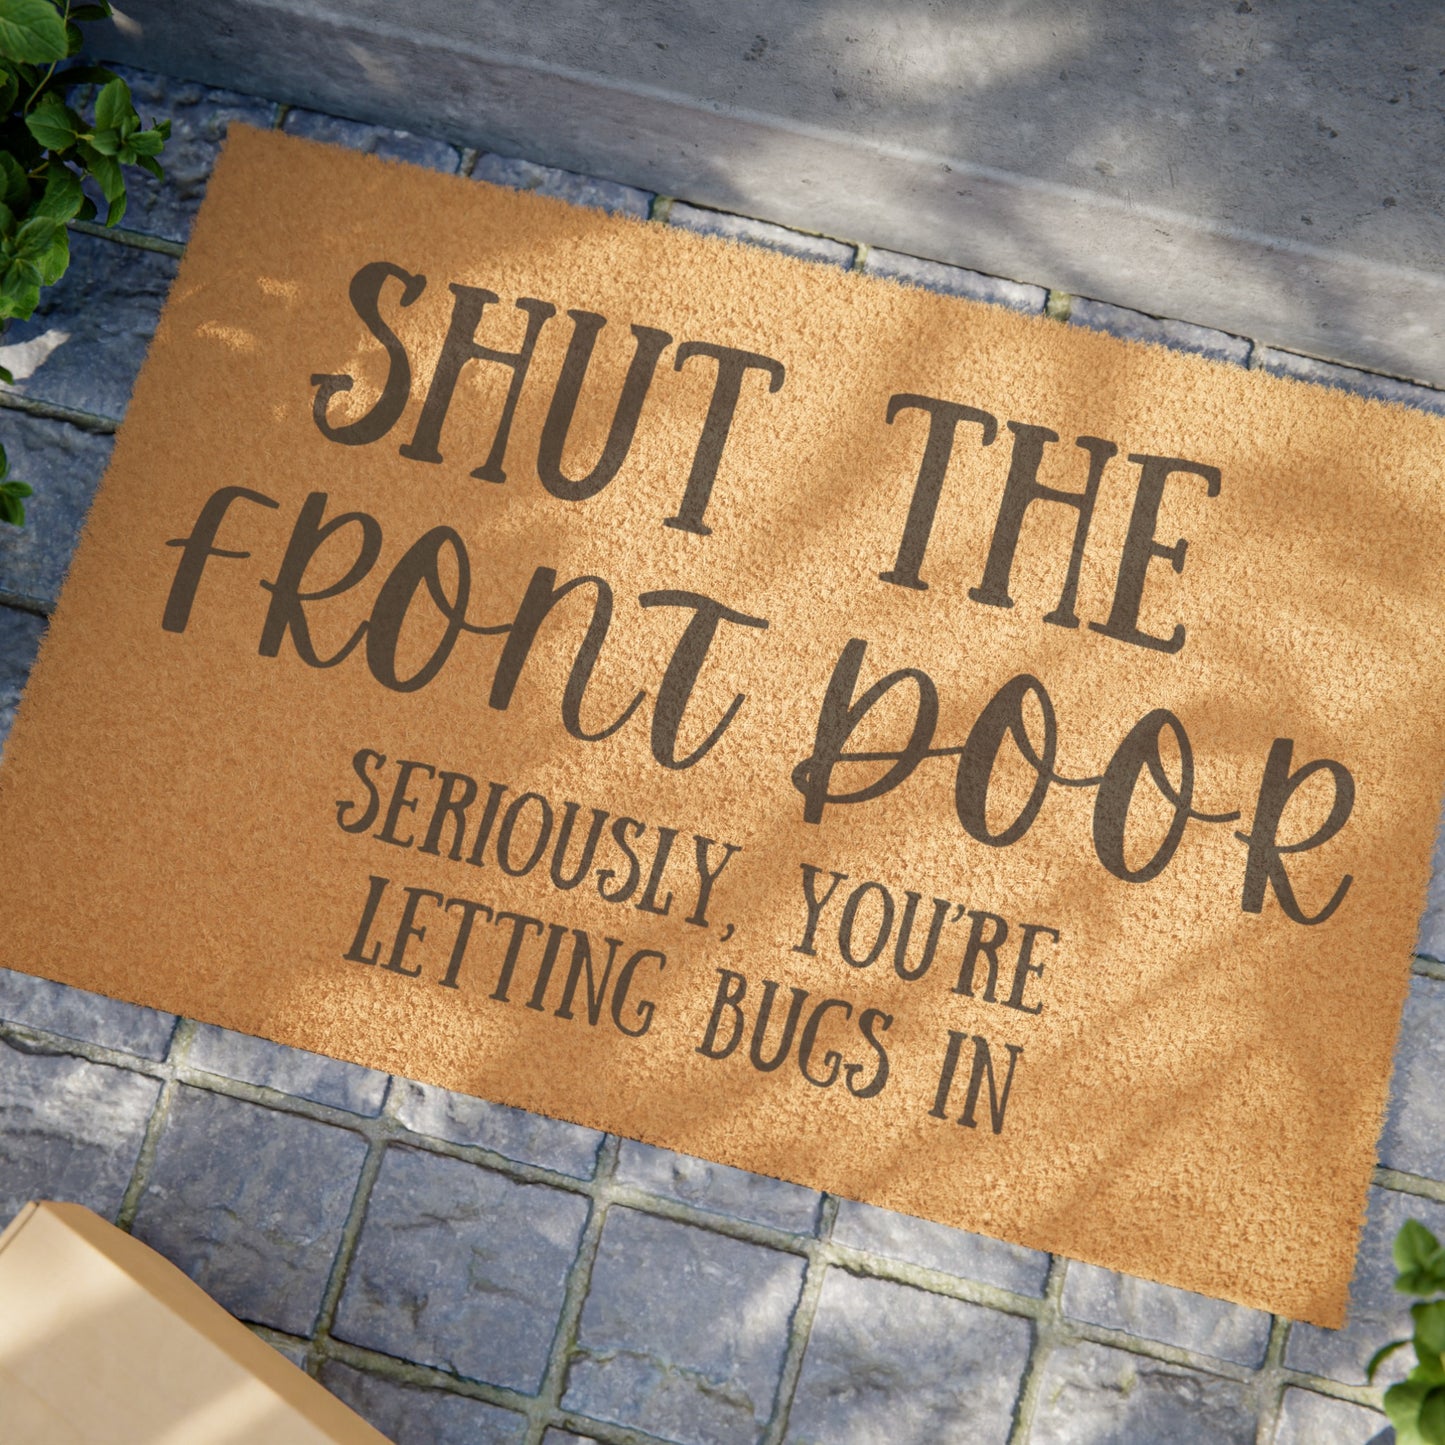 SHUT THE
FRONT DOOR
SERIOUSLY, YOU'RE
LETTING BUGS IN